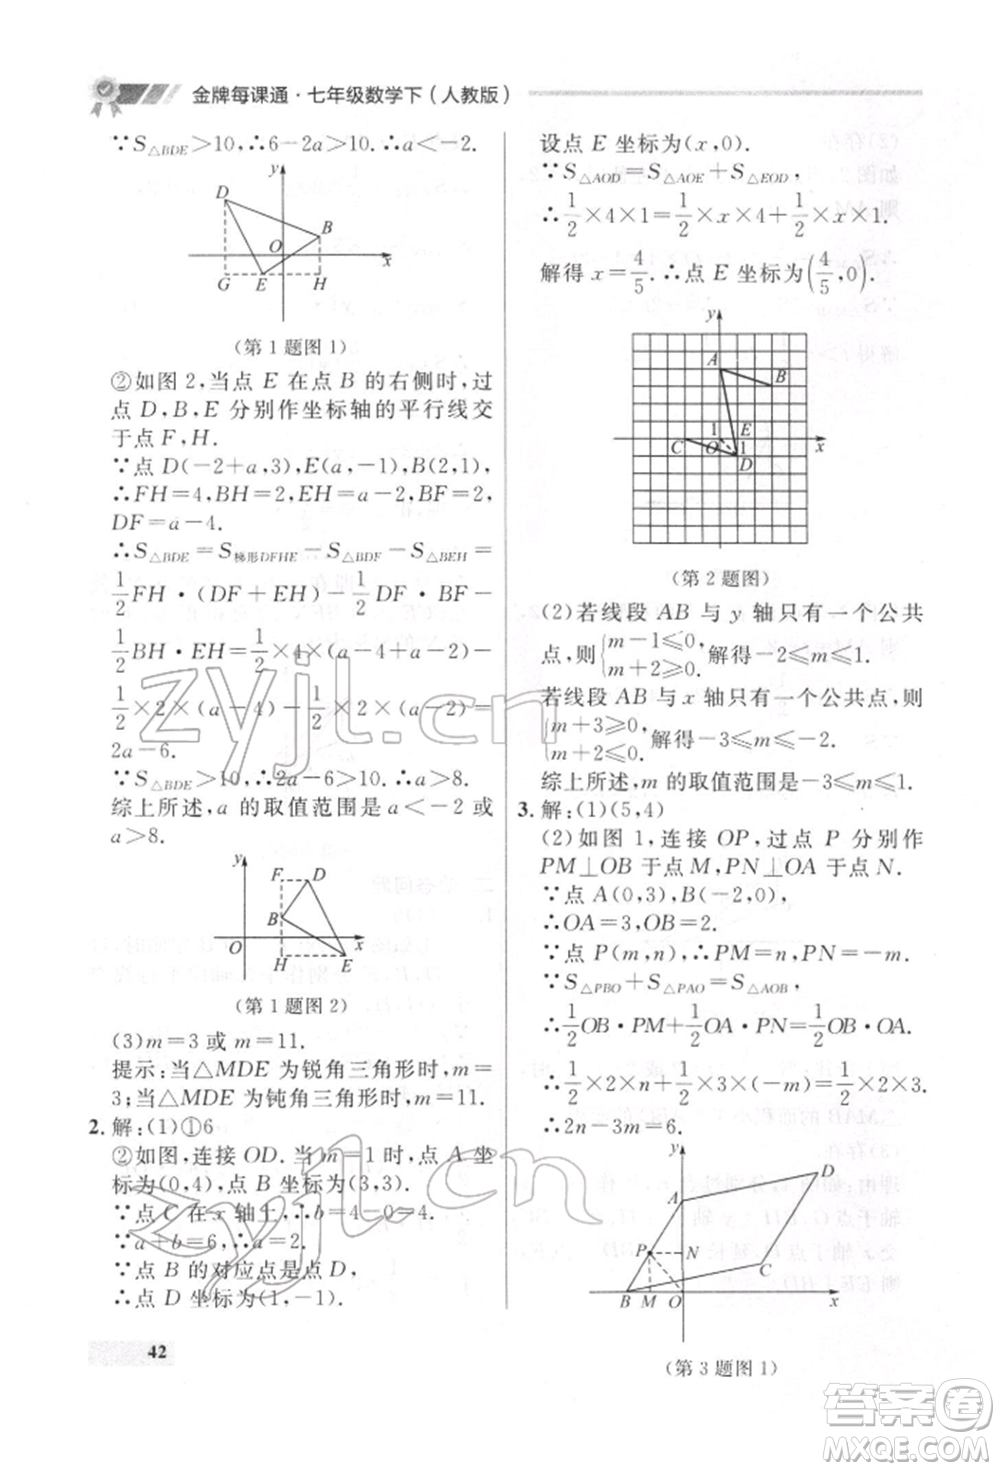 金牌每课通·七年级数学下(人教版)
∵S△BDE>10,∴6-2a>10.∴a<-2.
y
D
B
O
x
G
E
H
(第1题图1)
②如图2,当点E在点B的右侧时,过
点D,B,E分别作坐标轴的平行线交
于点F,H.
∵点D(-2+a,3),E(a,-1),B(2,1),
∴FH=4,BH=2,EH=a-2,BF=2,
DF=a-4.
∴S△BDE=S梯形DFHE-S△BDF-S△BEH=
1/2 FH·(DF+EH)-1/2 DF·BF-
1/2 BH·EH=1/2×4×(a-4+a-2)-
1/2×2×(a-4)-1/2×2×(a-2)=
2a-6.
∵S△BDE>10,∴2a-6>10.∴a>8.
综上所述,a的取值范围是a<-2或
a>8.
y
F
D
B
O
x
H
E
(第1题图2)
(3)m=3或m=11.
提示:当△MDE为锐角三角形时,m=
3;当△MDE为钝角三角形时,m=11.
2.解:(1)①6
②如图,连接OD.当m=1时,点A坐
标为(0,4),点B坐标为(3,3).
∵点C在x轴上,∴b=4-0=4.
∵a+b=6,∴a=2.
∵点B的对应点是点D,
∴点D坐标为(1,-1).
42
设点E坐标为(x,0).
∵S△AOD=S△AOE+S△EOD,
∴1/2×4×1=1/2×x×4+1/2×x×1.
解得x=4/5.∴点E坐标为(4/5,0).
y
A
B
1
E
C
O
1
D
x
(第2题图)
(2)若线段AB与y轴只有一个公共
点,则{m-1≤0, m+2≥0,解得-2≤m≤1.
若线段AB与x轴只有一个公共点,则
{m+3≥0, m+2≤0,解得-3≤m≤-2.
综上所述,m的取值范围是-3≤m≤1.
3.解:(1)(5,4)
(2)如图1,连接OP,过点P分别作
PM⊥OB于点M,PN⊥OA于点N.
∵点A(0,3),B(-2,0),
∴OA=3,OB=2.
∵点P(m,n),∴PM=n,PN=-m.
∵S△PBO+S△PAO=S△AOB,
∴1/2 OB·PM+1/2 OA·PN=1/2 OB·OA.
∴1/2×2×n+1/2×3×(-m)=1/2×2×3.
∴2n-3m=6.
y
D
A
P
N
C
B
M
O
x
(第3题图1)
zyjl.cn
答案圈
MXQE.COM